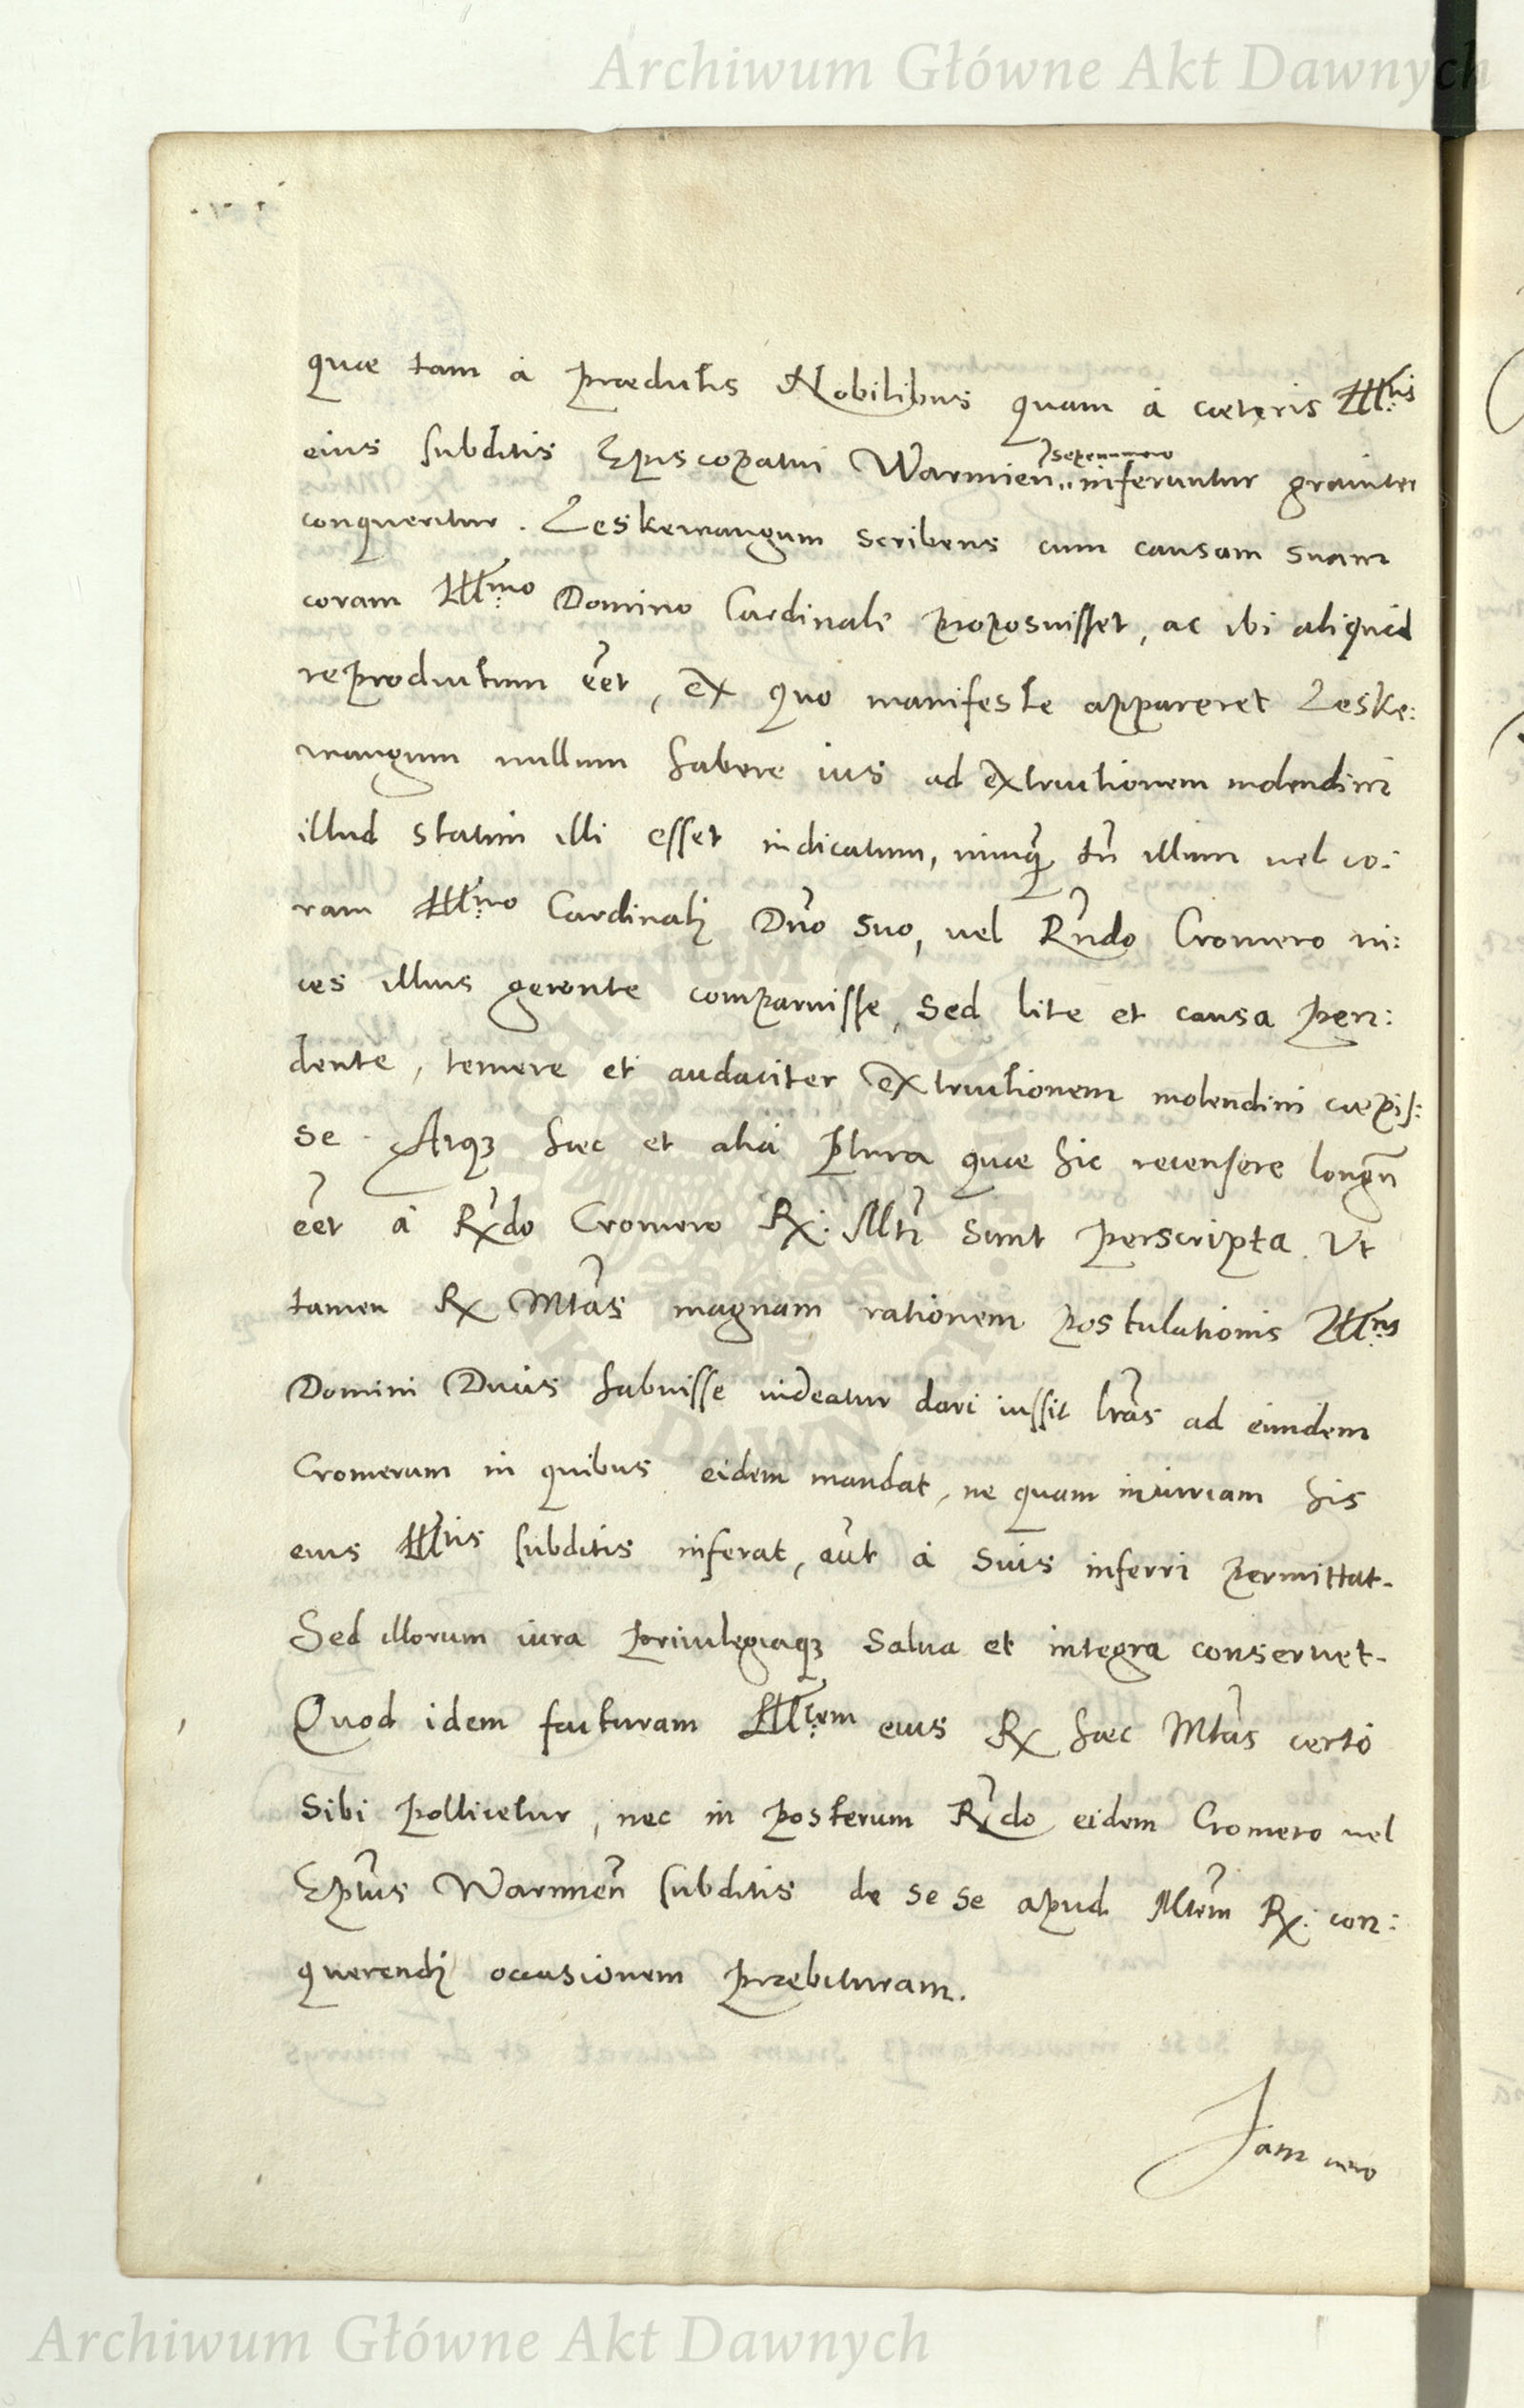 Archiwum Główne Akt Dawnych
quae tam à praedictis Nobilibus quam à caeteris Ill:tis
sepenumero
eius subditis Episcopatui Warmien: inferuntur grauiter
conqueritur. Leskewangum scribens cum causam suam
coram Ill:mo Domino Cardinale proposuisset, ac ibi aliquid
reproductum eēt, ex quo manifeste appareret Leske:
wangum nullum habere ius ad extructionem molendini
illud statim illi esset indicatum, nunq̃ tñ illum vel co:
ram Ill:mo Cardinali Dño suo, vel Rñdo Cromero vi:
ces illius gerente comparuisse, sed lite et causa pen:
dente, temere et audaciter extructionem molendini caepis:
se. Atqꝫ haec et alia plura quae hic recensere longũ
eēt à R̃do Cromero R: Mti sunt perscripta. Vt
tamen R Mtas magnam rationem postulationis Ill:mi
Domini Ducis habuisse videatur dari iussit lr̃as ad eundem
Cromerum in quibus eidem mandat, ne quam iniuriam his
eius Ill:tis subditis inferat, aut à suis inferri permittat.
Sed illorum iura priuilegiaqꝫ salua et integra conseruet.
Quod idem facturam Ill:tem eius R haec Mtas certò
sibi pollicetur, nec in posterum R̃do eidem Cromero vel
Ep̃tus Warmieñ subditis de sese apud Mtem R: con:
querendi occasionem praebituram.
Jam vero
Archiwum Główne Akt Dawnych